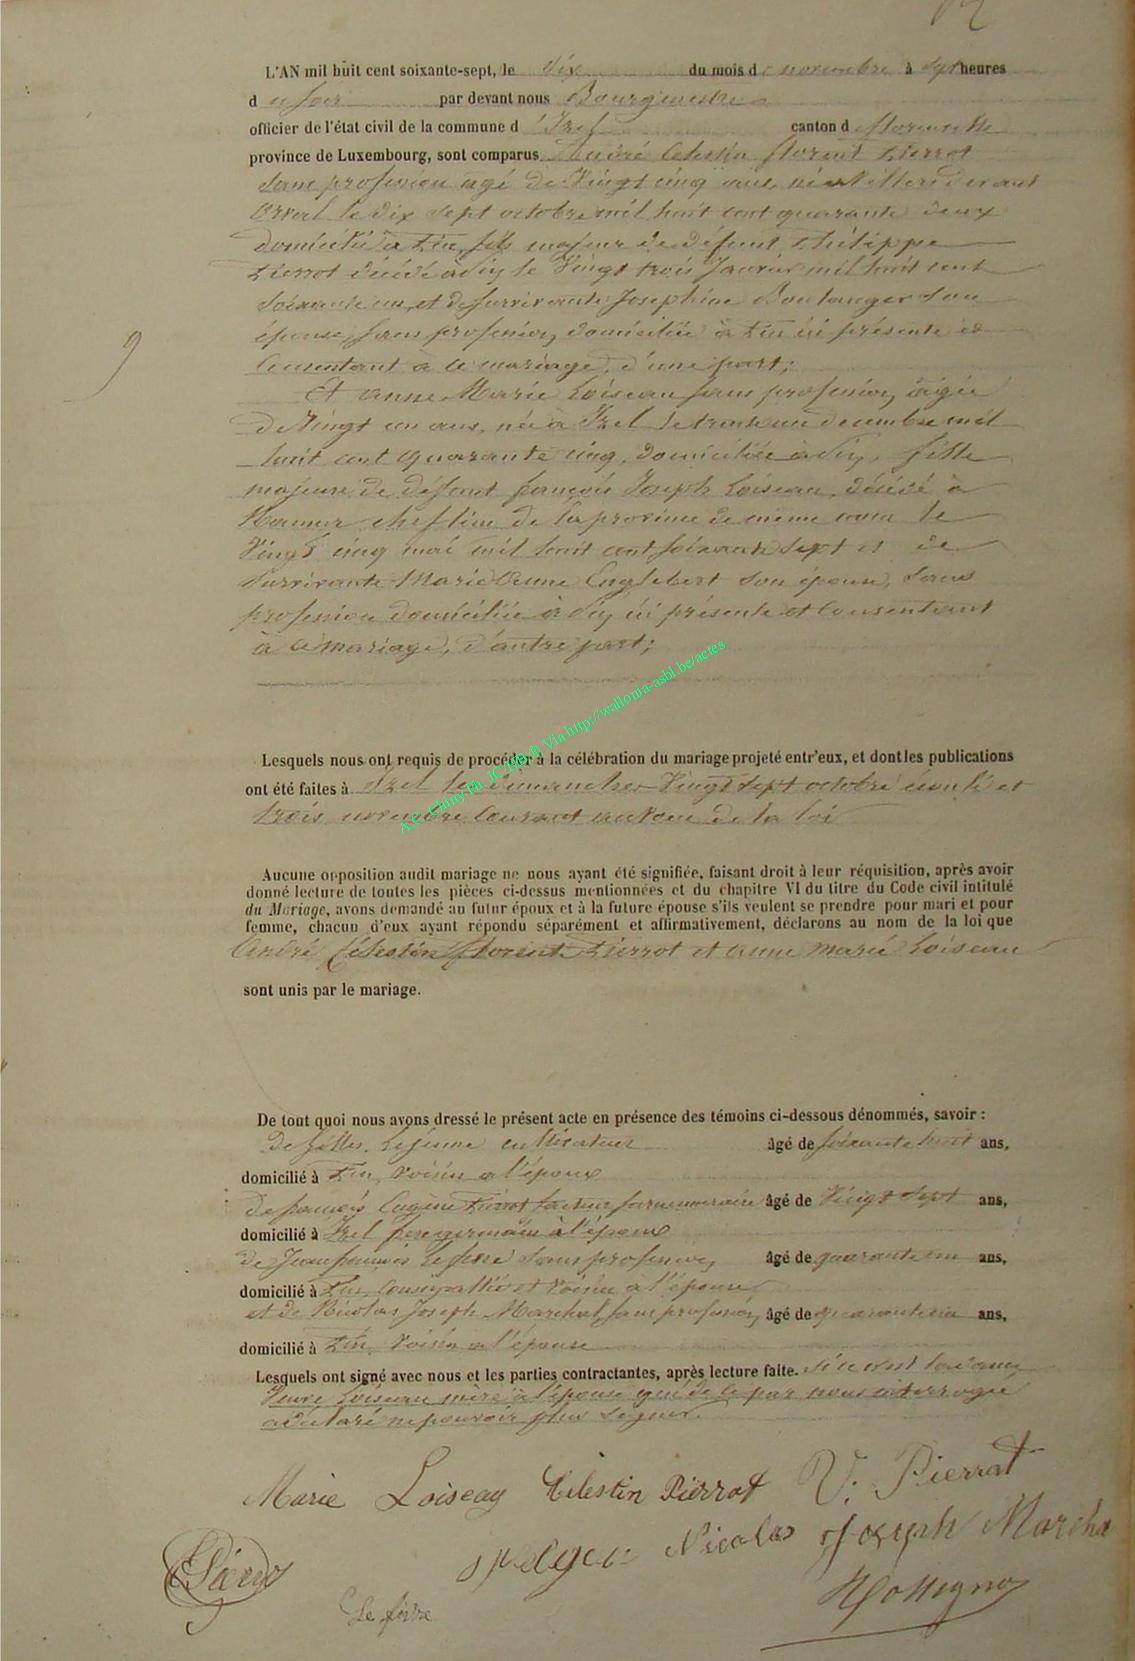 L'AN mil huit cent soixante-sept, le dix du mois de novembre à sept heures
du soir par devant nous Bourgmestre
officier de l'état civil de la commune d'Izel canton de florenville
province de Luxembourg, sont comparus André Celestin florent Pierrot
sans profession agé de Vingt cinq ans, né à Villers devant
orval le dix sept octobre mil huit cent quarante deux
domicilié à Pin fils majeur de défunt Philippe
Pierrot décédé à Pin le Vingt trois Janvier mil huit cent
soixante un et de survivante Josephine Boulanger son
épouse, sans profession, domiciliée à Pin ici présente et
Consentant à ce mariage, d'une part;
9
Et anne Marie Loiseau sans profession, âgée
de Vingt un ans, née à Izel le trente un decembre mil
huit cent quarante cinq, domiciliée à Pin, fille
majeure de défunt françois Joseph Loiseau, décédé à
Namur chef lieu de la province de même nom le
Vingt cinq mai mil huit cent soixante sept et de
survivante Marie Anne Englebert son épouse, sans
profession domiciliée à Pin ici présente et Consentant
à ce mariage, d'autre part;
A.C. Chiny Ph. JC HB ® Via http://wallonia-asbl.be/actes
Lesquels nous ont requis de procéder à la célébration du mariage projeté entr'eux, et dont les publications
ont été faites à Izel les dimanches Vingt sept octobre écoulé et
trois novembre Courant au vœu de la loi
Aucune opposition audit mariage ne nous ayant été signifiée, faisant droit à leur réquisition, après avoir
donné lecture de toutes les pièces ci-dessus mentionnées et du chapitre VI du titre du Code civil intitulé
du Mariage, avons demandé au futur époux et à la future épouse s'ils veulent se prendre pour mari et pour
femme, chacun d'eux ayant répondu séparément et affirmativement, déclarons au nom de la loi que
André Célestin florent Pierrot et anne marie Loiseau
sont unis par le mariage.
De tout quoi nous avons dressé le présent acte en présence des témoins ci-dessous dénommés, savoir :
De Gilles Lejeune cultivateur âgé de soixante huit ans,
domicilié à Pin, Voisin a l'époux
de françois Eugène Pierrot facteur surnuméraire âgé de Vingt sept ans,
domicilié à Izel frere germain à l'époux
de Jean françois Lefevre sans profession, âgé de quarante un ans,
domicilié à Pin, Cousin allié et Voisin a l'épouse
et de Nicolas Joseph Marchal, sans profession, âgé de quarante un ans,
domicilié à Pin, Voisin a l'épouse
Lesquels ont signé avec nous et les parties contractantes, après lecture faite. si ce n'est la dame
Veuve Loiseau mère à l'épouse qui de ce par nous interrogée
a déclaré ne pouvoir plus signer.
Marie Loiseau Celestin Pierrot V. Pierrat
Nicolas Joseph Marcha